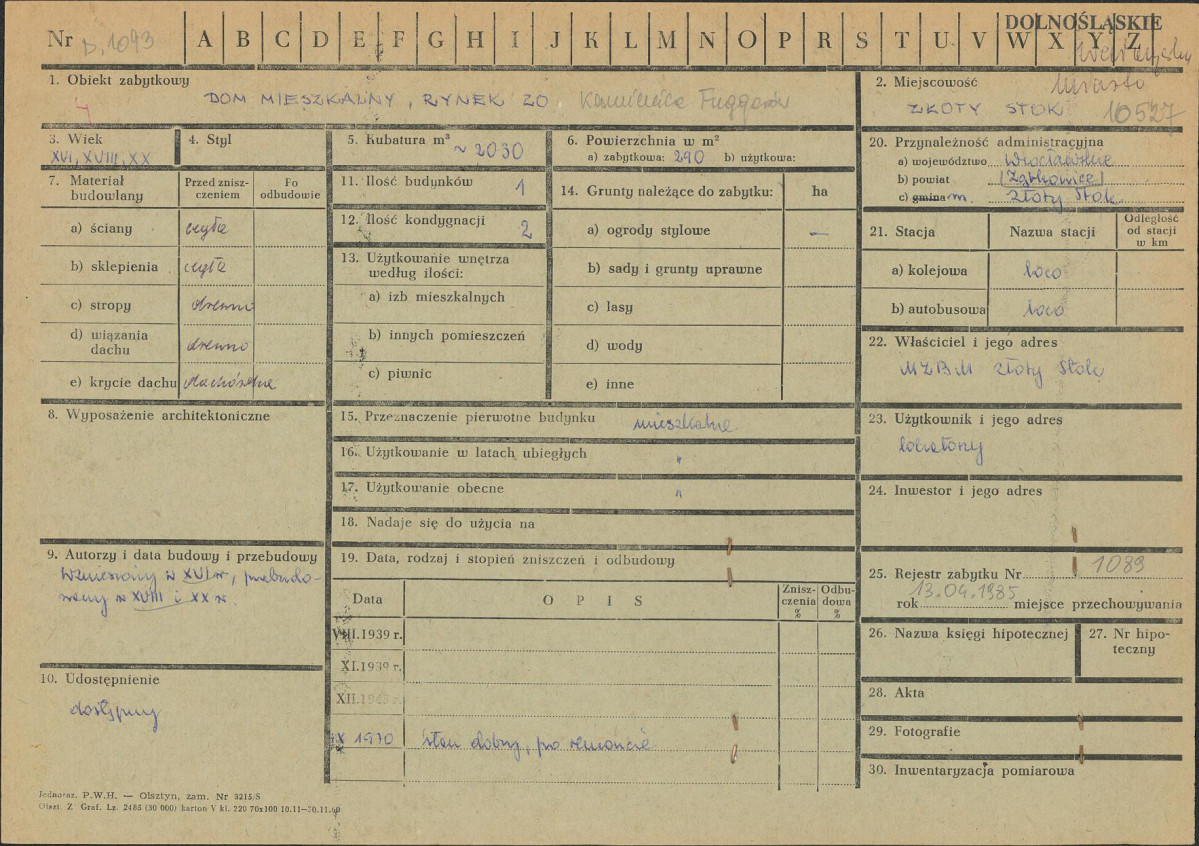 DOLNOŚLĄSKIE
Nr
A B C D E F G H I J K L M N O P R S T U V W X Y Z
1. Obiekt zabytkowy
DOM MIESZKALNY, RYNEK 20 Kamienica Fuggerów
2. Miejscowość
miasto
ZŁOTY STOK 10527
3. Wiek
XVI, XVIII, XX
4. Styl
5. Kubatura m³
~ 2030
6. Powierzchnia w m²
a) zabytkowa: 290 b) użytkowa:
7. Materiał budowlany
Przed zniszczeniem
Po odbudowie
a) ściany cegła
b) sklepienia cegła
c) stropy drewno
d) wiązania dachu drewno
e) krycie dachu dachówka
8. Wyposażenie architektoniczne
9. Autorzy i data budowy i przebudowy
Wzniesiony w XVI w, przebudo-
wany w XVIII i XX w.
10. Udostępnienie
dostępny
11. Ilość budynków 1
12. Ilość kondygnacji 2
13. Użytkowanie wnętrza
według ilości:
a) izb mieszkalnych
b) innych pomieszczeń
c) piwnic
14. Grunty należące do zabytku: ha
a) ogrody stylowe —
b) sady i grunty uprawne
c) lasy
d) wody
e) inne
15. Przeznaczenie pierwotne budynku mieszkalne
16. Użytkowanie w latach ubiegłych "
17. Użytkowanie obecne "
18. Nadaje się do użycia na
19. Data, rodzaj i stopień zniszczeń i odbudowy
Data
OPIS
Znisz-
czenia
%
Odbu-
dowa
%
VIII.1939 r.
XI.1939 r.
XII.1945 r.
X 1970 stan dobry, po remoncie
20. Przynależność administracyjna
a) województwo wrocławskie
b) powiat (Ząbkowice)
c) gmina m. Złoty Stok
21. Stacja
Nazwa stacji
Odległość
od stacji
w km
a) kolejowa loco
b) autobusowa loco
22. Właściciel i jego adres
MZBM Złoty Stok
23. Użytkownik i jego adres
lokatorzy
24. Inwestor i jego adres
25. Rejestr zabytku Nr 1089
13.04.1985
rok miejsce przechowywania
26. Nazwa księgi hipotecznej
27. Nr hipo-
teczny
28. Akta
29. Fotografie
30. Inwentaryzacja pomiarowa
Jednoraz. P.W.H. — Olsztyn, zam. Nr 3215/S
Olszt. Z. Graf. Lz. 2485 (30 000) karton V kl. 220 70x100 10.11—30.11.60